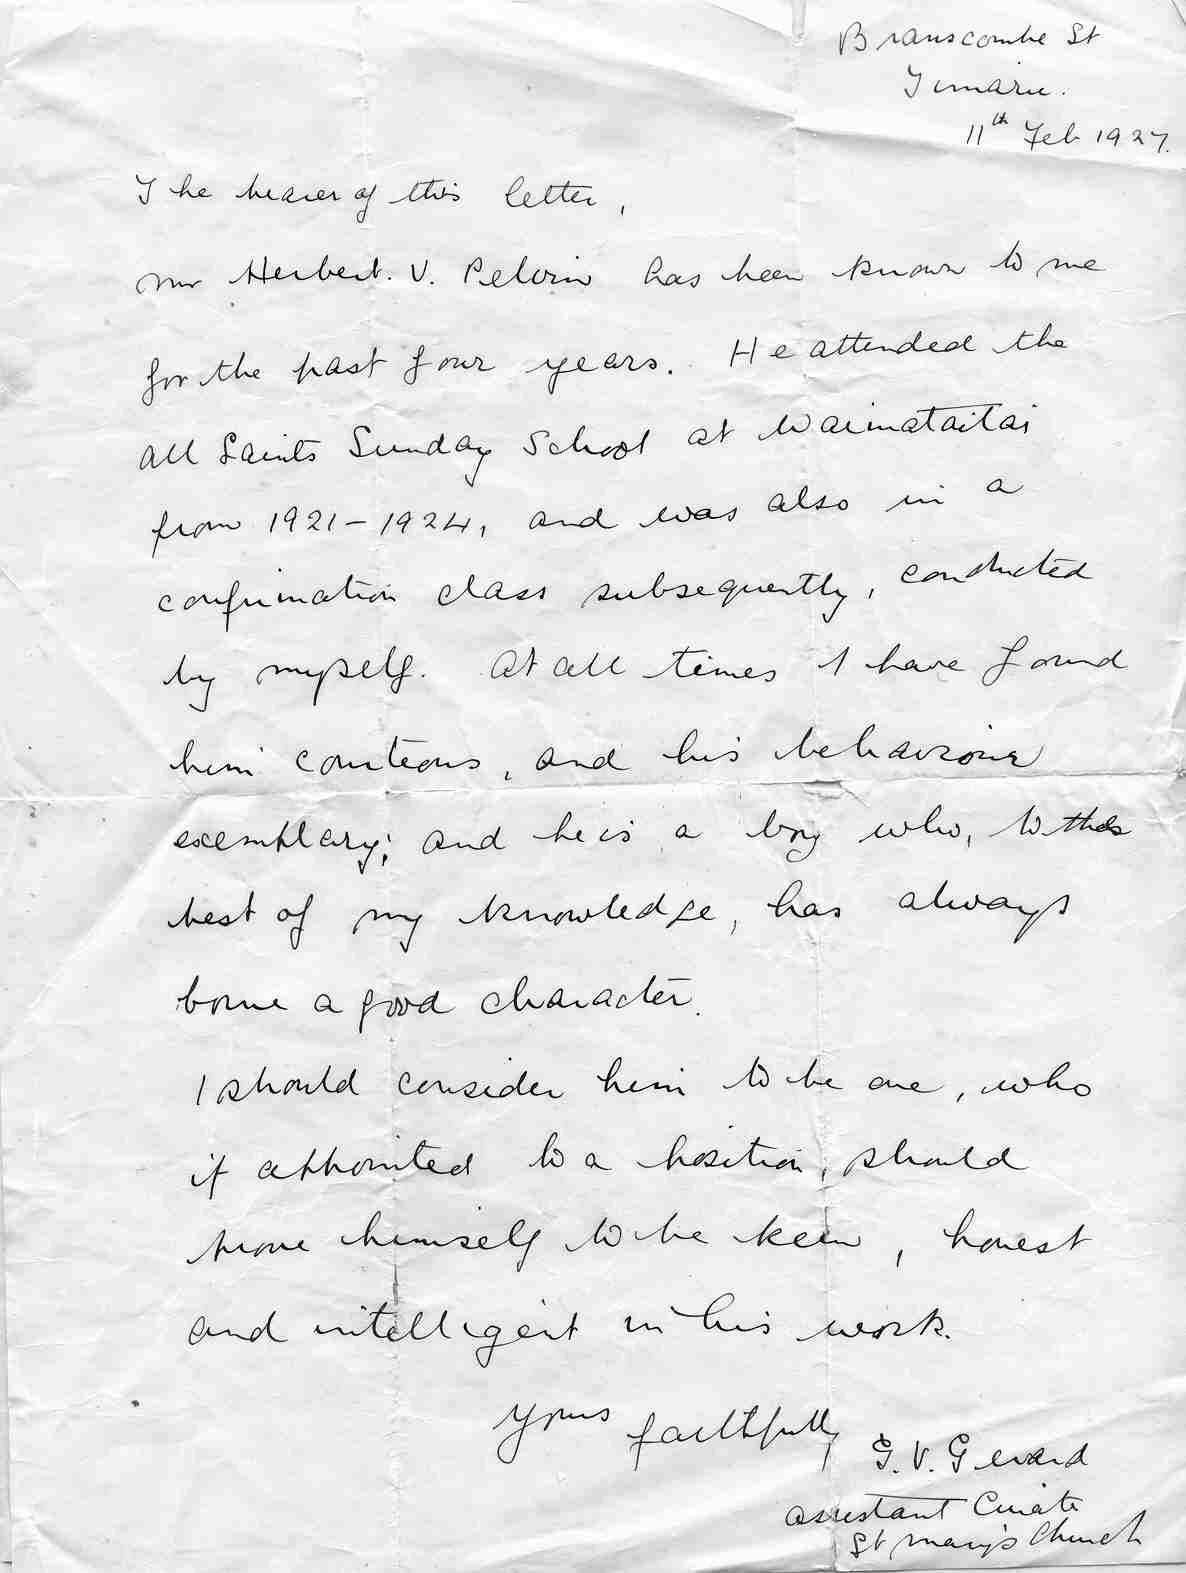 Branscombe St
Timaru.
11th Feb 1927.
The bearer of this letter,
Mr Herbert. V. Pelvin has been known to me
for the past four years. He attended the
All Saints Sunday School at Waimataitai
from 1921-1924, and was also in a
confirmation class subsequently, conducted
by myself. At all times I have found
him courteous, and his behaviour
exemplary; and he is a boy who, to the
best of my knowledge, has always
borne a good character.
I should consider him to be one, who
if appointed to a position, should
prove himself to be keen, honest
and intelligent in his work.
Yours faithfully
G. V. Gerard
Assistant Curate
St Mary's Church